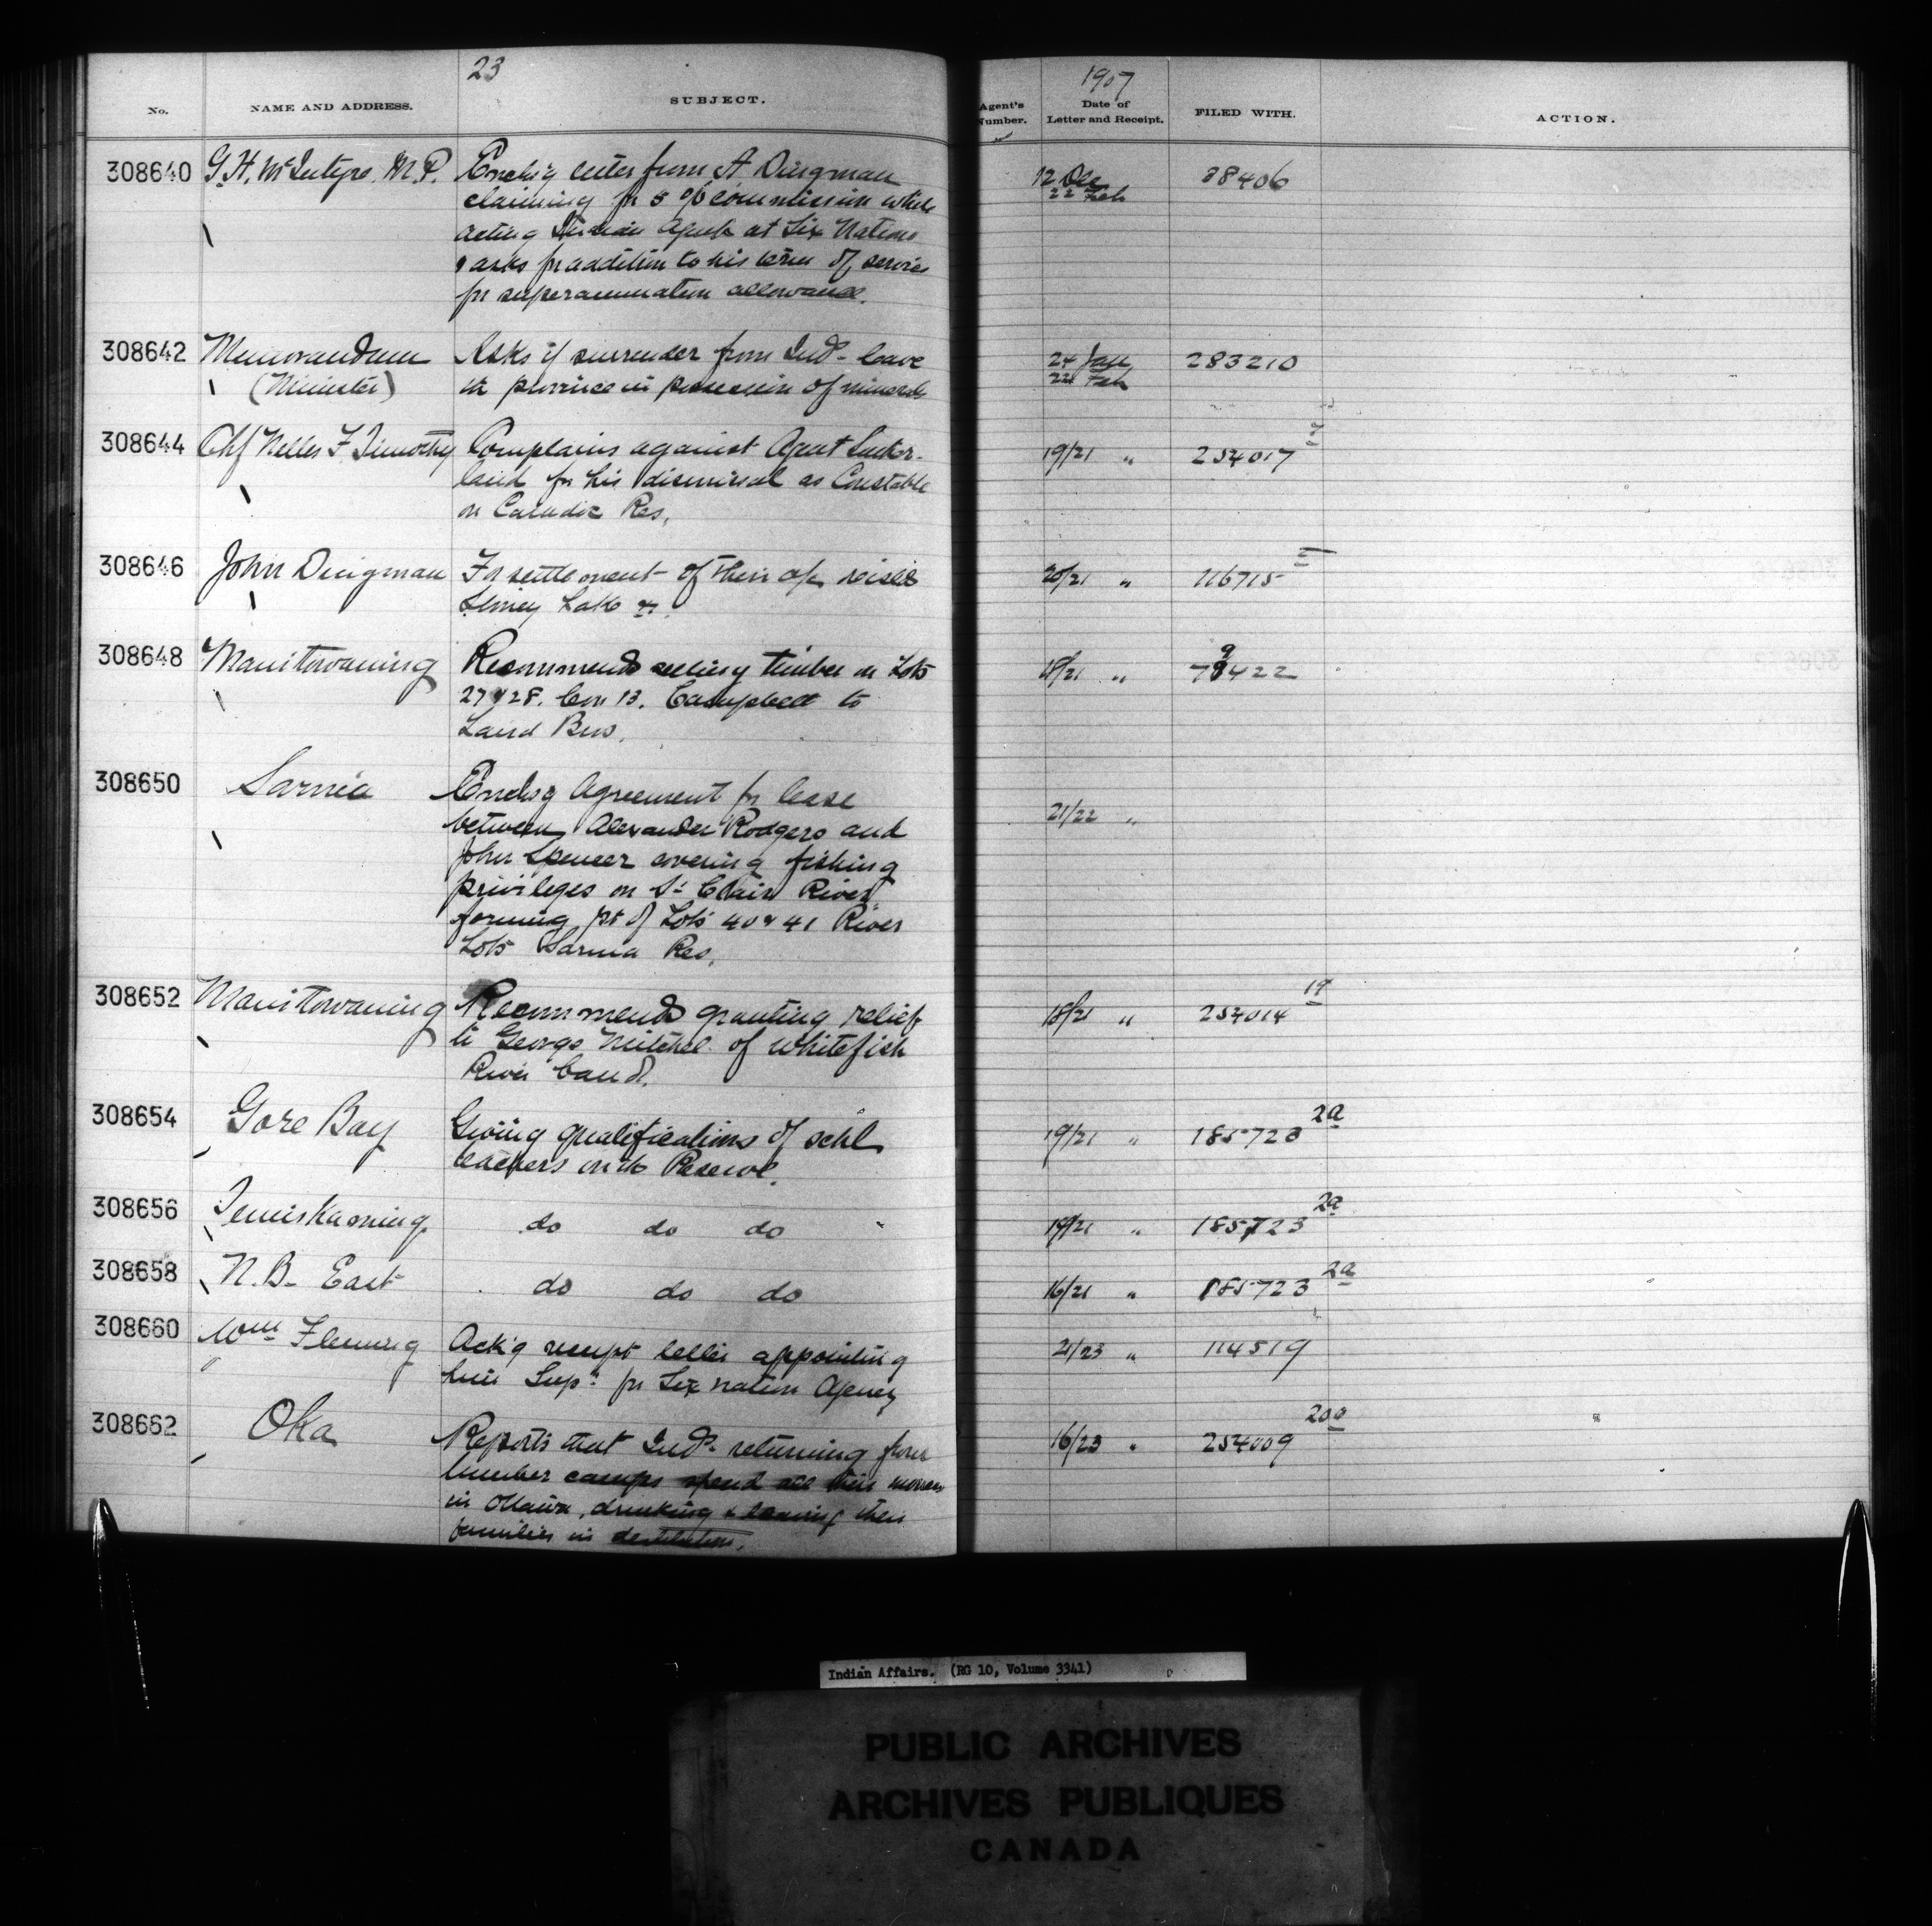 23
No. NAME AND ADDRESS. SUBJECT.
308640 G.H. McIntyre. M.P. Enclsg letter from A Dingman
claiming for 5% commission while
acting Indian Agent at Six Nations
& asks for addition to his term of service
for superannuation allowance.
308642 Memorandum Asks if surrender from Inds leave
(Minister) province in possession of minerals
308644 Chf Nelles F Timothy Complains against Agent Suther-
land for his dismissal as Constable
on Caradoc Res.
308646 John Dingman For settlement of their a/c
Lake
308648 Manitowaning Recommends selling timber on Lots
27 & 28. Con 13. Campbell to
Laird Bros.
308650 Sarnia Enclsg Agreement for lease
between Alexander Rodgers and
John Spencer covering fishing
privileges on St Clair River
forming pt of Lots 40 & 41 River
Lots Sarnia Res.
308652 Manitowaning Recommends granting relief
to George Mitchel of Whitefish
River band.
308654 Gore Bay Giving qualifications of schl
teachers on the Reserve.
308656 Temiskaming do do do
308658 N.B. East do do do
308660 Wm Fleming Ack'g receipt letter appointing
him Supt for Six nation Agency
308662 Oka Reports that Inds returning from
lumber camps spend all their money
in Ottawa, drinking & leaving their
families in destitution.
1907
Agent's Number. Date of Letter and Receipt. FILED WITH. ACTION.
12 Dec
22 Feb 38406
24 Jan
22 Feb 283210
19/21 " 254017
20/21 " 116715
18/21 " 422
21/22 "
18/21 " 254014 19
19/21 " 185723 2a
19/21 " 185723 2a
16/21 " 185723 2a
21/23 " 114519
16/23 " 254009
Indian Affairs. (RG 10, Volume 3341)
PUBLIC ARCHIVES
ARCHIVES PUBLIQUES
CANADA